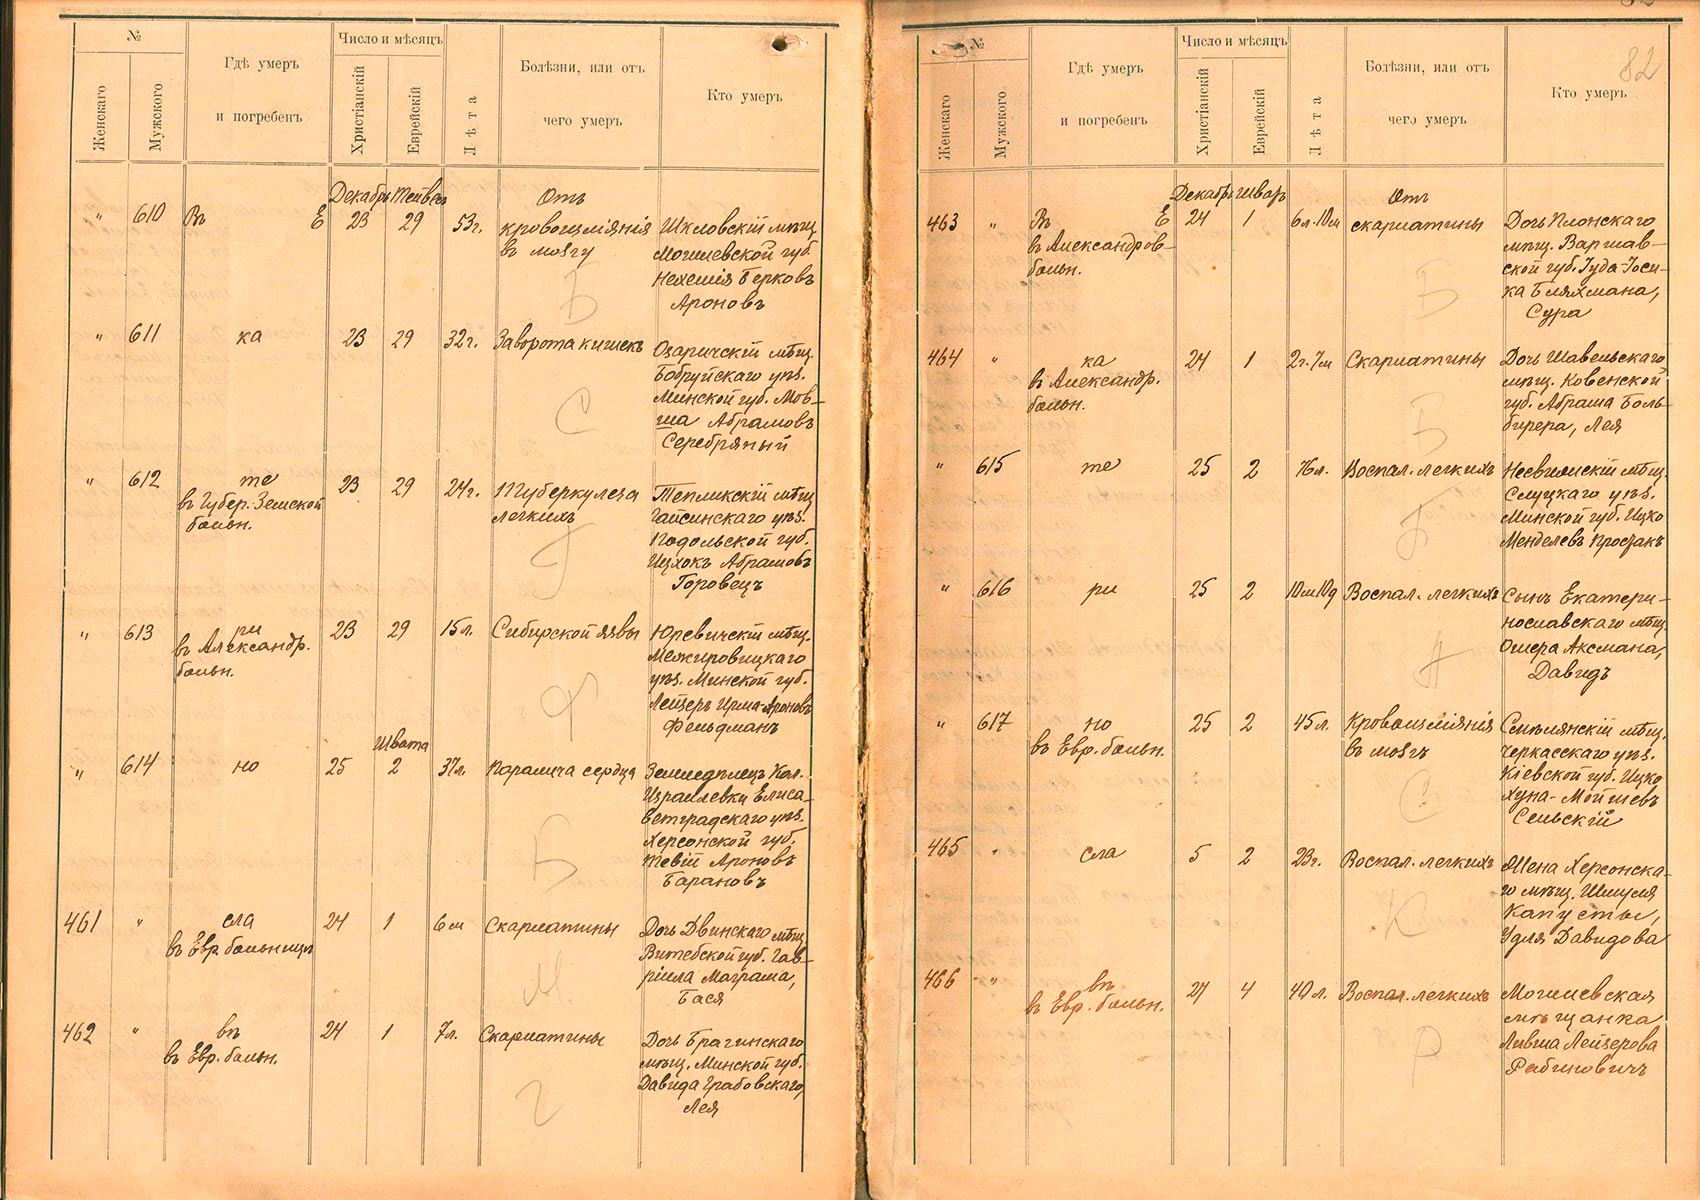 №
Женскаго
Мужского
Гдѣ умеръ
и погребенъ
Число и мѣсяцъ
Христіанскій
Еврейскій
Лѣта
Болѣзни, или отъ
чего умеръ
Кто умеръ
Декабрь Тейвесъ
Отъ
" 610 Въ Е 23 29 53г. кровоизліянія Шкловскій мѣщ.
въ мозгу Могилевской губ.
Нехемія Берковъ
Б
Ароновъ
" 611 ка 23 29 32г. Заворота кишекъ Озаричскій мѣщ.
Бобруйскаго уѣз.
Минской губ. Мов-
С
ша Абрамовъ
Серебряный
" 612 те 23 29 24г. Туберкулеза Тепликскій мѣщ.
въ Губер. Земской легкихъ Гайсинскаго уѣз.
больн. Подольской губ.
Г
Ицхокъ Абрамовъ
Горовецъ
" 613 ри 23 29 15л. Сибирской язвы Юревичскій мѣщ.
въ Александр. 
больн. уѣз. Минской губ.
Ф
Лейзеръ Ароновъ
Фельдманъ
Швата
" 614 но 25 2 37л. Паралича сердца Земледѣлецъ Кол.
Израилевки Елиса-
ветградскаго уѣз.
Херсонской губ.
Б
Тевій Ароновъ
Барановъ
461 " сла 24 1 6м Скарлатины Дочь Двинскаго мѣщ.
въ Евр. больницѣ Витебской губ. Гав-
ріила
М
Бася
462 " въ 24 1 7л. Скарлатины Дочь Брагинскаго
въ Евр. больн. мѣщ. Минской губ.
Давида Грабовскаго,
Г
Лея
82
№
Женскаго
Мужского
Гдѣ умеръ
и погребенъ
Число и мѣсяцъ
Христіанскій
Еврейскій
Лѣта
Болѣзни, или отъ
чего умеръ
Кто умеръ
Декабрь Шватъ
Отъ
463 " Въ Е 24 1 6л.10м скарлатины Дочь Плонскаго
въ Александров- мѣщ. Варшав-
больн. ской губ. Іуда-Іоси-
Б
ка Бляхмана,
Сура
464 " ка 24 1 2г.7м Скарлатины Дочь Шавельскаго
въ Александр. мѣщ. Ковенской
больн. губ. Абрама Боль-
Б
бирера, Лея
" 615 те 25 2 76л. Воспал. легкихъ Несвижскій мѣщ.
Слуцкаго уѣз.
Минской губ. Ицко
П
Менделевъ
" 616 ри 25 2 10м10д Воспал. легкихъ Сынъ Екатери-
нославскаго мѣщ.
Ошера Аксмана,
А
Давидъ
" 617 но 25 2 45л. Кровоизліянія Смѣлянскій мѣщ.
въ Евр. больн. въ мозгъ Черкасскаго уѣз.
Кіевской губ. Ицко
С
Хуна-Мойшевъ
Сельскій
465 " сла 5 2 23г. Воспал. легкихъ Жена Херсонска-
го мѣщ. Шмуля
К
Капусты,
Удля Давидова
466 " въ 27 4 40л. Воспал. легкихъ Могилевская
въ Евр. больн. мѣщанка
Р
Ливша Лейзерова
Рабиновичъ